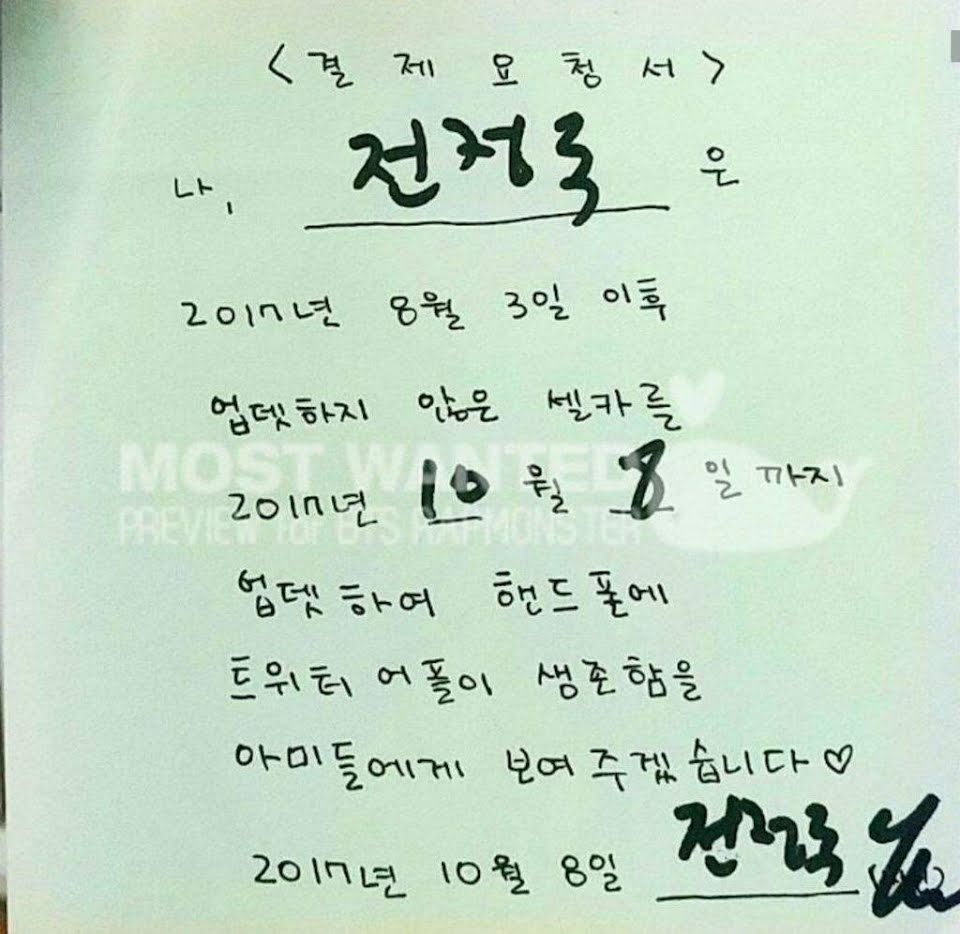 <결제요청서>
나, 전정국 은
2017년 8월 3일 이후
업뎃하지 않은 셀카를
2017년 10월 8일까지
업뎃하여 핸드폰에
트위터 어플이 생존함을
아미들에게 보여주겠습니다♡
2017년 10월 8일 전정국
MOST WANTED
PREVIEW for BTS RAPMONSTER